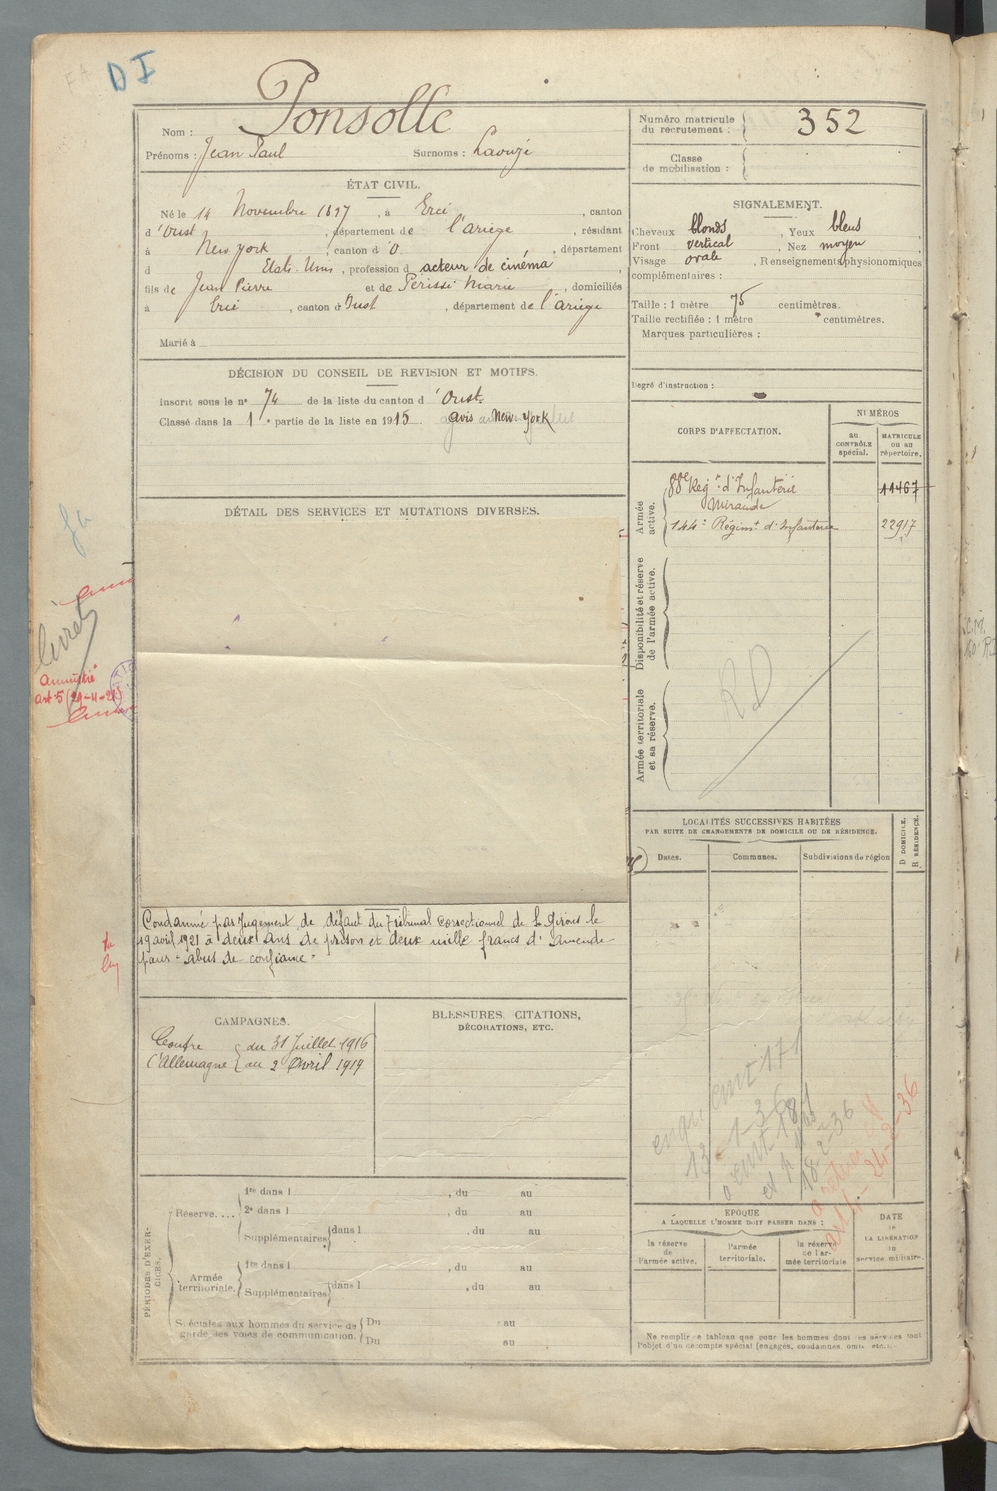 DI
Nom : Ponsolle
Prénoms : Jean Paul Surnoms : Laouji
ÉTAT CIVIL.
Né le 14 Novembre 1897, à Ercé, canton
d'Oust, département de l'ariège, résidant
à New York, canton d'O, département
d Etats-Unis, profession d acteur de cinéma,
fils de Jean Pierre et de Périssé Marie, domiciliés
à Ercé, canton d'Oust, département de l'ariège
Marié à
DÉCISION DU CONSEIL DE REVISION ET MOTIFS.
Inscrit sous le n° 74 de la liste du canton d'Oust.
Classé dans la 1e partie de la liste en 1915. avis New York
DÉTAIL DES SERVICES ET MUTATIONS DIVERSES.
livret
Amnistié
art 5 (29-4-21)
Condamné par Jugement de défaut du Tribunal correctionnel de St Girons le
19 avril 1921 à deux ans de prison et deux mille francs d'amende
pour "abus de confiance"
CAMPAGNES.
Contre
l'Allemagne
du 31 Juillet 1916
au 2 Avril 1919
BLESSURES, CITATIONS,
DÉCORATIONS, ETC.
PÉRIODES D'EXERCICES.
Réserve....
1re dans l , du au
2e dans l , du au
Supplémentaires dans l , du au
Armée
territoriale.
1re dans l , du au
Supplémentaires dans l , du au
Spéciales aux hommes du service de
garde des voies de communication.
Du au
Du au
Numéro matricule
du recrutement : 352
Classe
de mobilisation :
SIGNALEMENT.
Cheveux blonds, Yeux bleus,
Front vertical, Nez moyen
Visage ovale, Renseignements physionomiques
complémentaires :
Taille : 1 mètre 75 centimètres.
Taille rectifiée : 1 mètre centimètres.
Marques particulières :
Degré d'instruction :
CORPS D'AFFECTATION.
NUMÉROS
au
CONTRÔLE
spécial.
MATRICULE
ou au
répertoire.
Armée
active.
88e Régt d'Infanterie 11467
Mirande
144e Régimt d'Infanterie 22917
Disponibilité et réserve
de l'armée active.
Armée territoriale
et sa réserve.
RD
LOCALITÉS SUCCESSIVES HABITÉES
PAR SUITE DE CHANGEMENTS DE DOMICILE OU DE RÉSIDENCE.
Dates. Communes. Subdivisions de région
D DOMICILE.
R RÉSIDENCE.
18-2-36
24-2-36
ÉPOQUE
A LAQUELLE L'HOMME DOIT PASSER DANS :
la réserve
de
l'armée active.
l'armée
territoriale.
la réserve
de l'ar-
mée territoriale
DATE
de
LA LIBÉRATION
du
service militaire.
Ne remplir ce tableau que pour les hommes dont les services font
l'objet d'un décompte spécial (engagés, condamnés, omis, etc...).